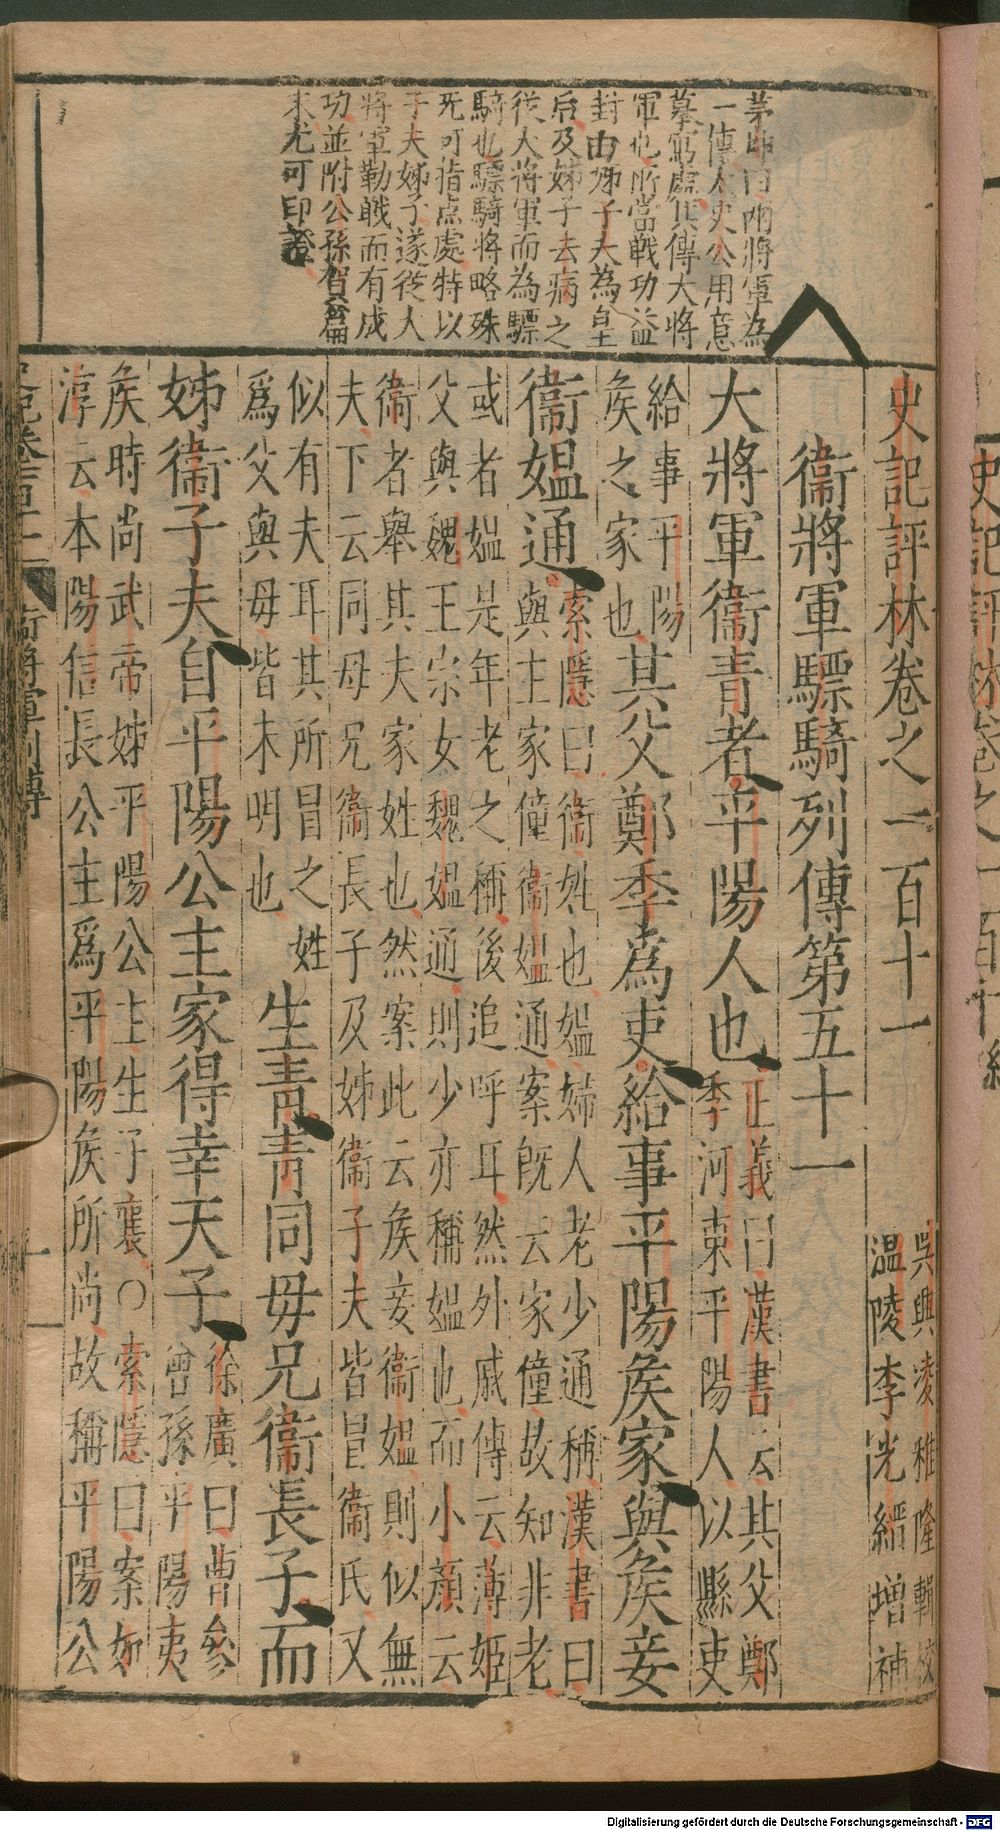 史記評林卷之一百十一
吳興凌稚隆輯校
溫陵李光縉增補
衞將軍驃騎列傳第五十一
大將軍衞青者平陽人也
正義曰漢書云其父鄭
季河東平陽人以縣吏
給事平陽
矦之家也
其父鄭季爲吏給事平陽矦家與矦妾
衞媼通
索隱曰衞姓也媼婦人老少通稱漢書曰
與主家僮衞媼通案旣云家僮故知非老
或者媼是年老之稱後追呼耳然外戚傳云薄姬
父與魏王宗女魏媼通則少亦稱媼也而小顏云
衞者舉其夫家姓也然案此云矦妾衞媼則似無
夫下云同母兄衞長子及姊衞子夫皆冒衞氏又
似有夫耳其所冒之姓
爲父與母皆未明也
生青青同母兄衞長子而
姊衞子夫自平陽公主家得幸天子
徐廣曰曹參
曾孫平陽夷
矦時尚武帝姊平陽公主生子襄○索隱曰案如
淳云本陽信長公主爲平陽矦所尚故稱平陽公
茅坤曰兩將軍為
一傳太史公用意
摹寫處其傳大將
軍也所當戰功益
封由姊子夫為皇
后及姊子去病之
從大將軍而為驃
騎也驃騎將略殊
无可指点處特以
子夫姊子遂從大
將軍勒戰而有成
功並附公孫賀篇
末尤可印證
衞將軍列傳
一
Digitalisierung gefördert durch die Deutsche Forschungsgemeinschaft - DFG